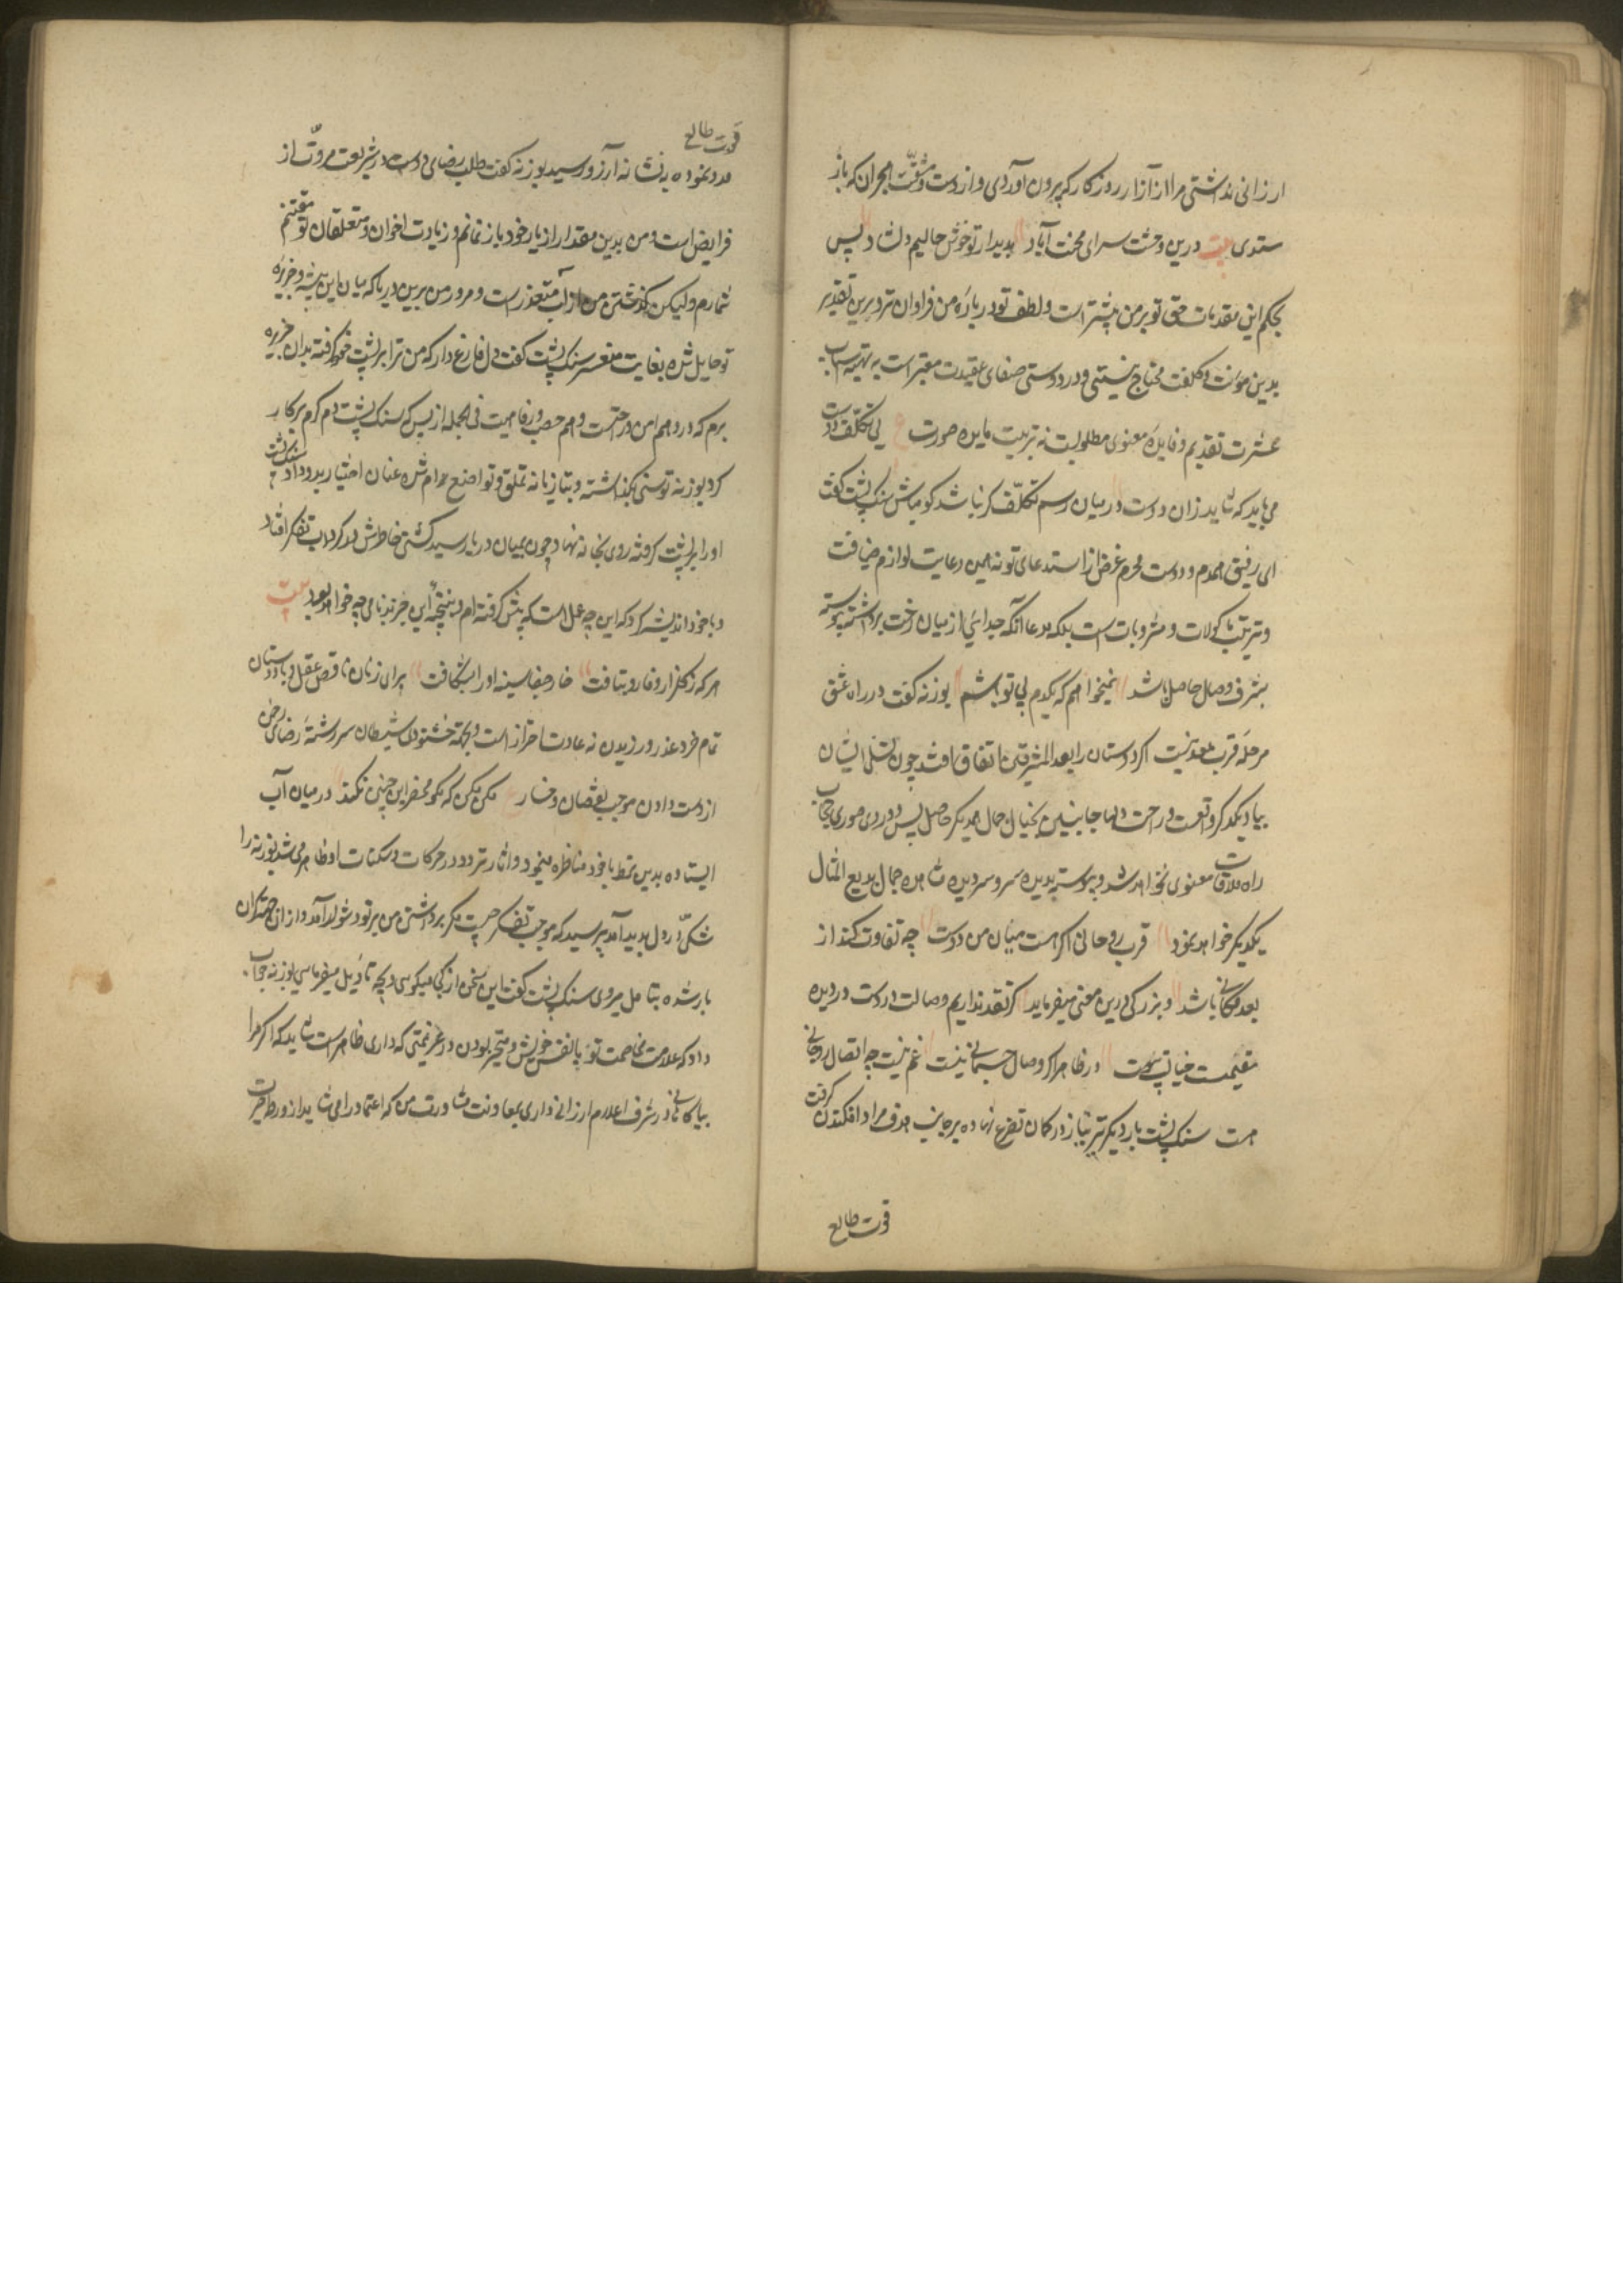 ارزانی نداشتی مرا از آزار روزکار که بیرون آوردی و از دست مشقّت هجران که باز
ستدی بیت درین وحشت سرای محنت آباد بدیدار تو خوش حالیم و دلشاد پس
بحکم این مقدمات حق تو بر من بیشتر است و لطف تو درباره من فراوان تر و برین تقدیر
بدین مؤنت و کلفت محتاج نیستی و در دوستی صفای عقیدت معتبر است نه تهیه اسباب
عشرت تقدیم و فایده معنوی مطلوبست نه تربیت مایده صورت ع بی تکلف دوست
می باید که شاید زان دوست در میان رسم تکلّف کر نباشد کو مباش سنک پشت کفت
ای رفیق همدم و دوست محرم غرض از استدعای تو نه همین رعایت لوازم ضیافت
و ترتیب ماکولات و مشروبات است بلکه مدعا آنکه جدایی از میان رخت برداشته پیوسته
بشرف وصال حاصل باشد نمیخواهم که یکدم بی تو باشم بوزنه کفت در راه عشق
مرحله قرب بعد نیست اکر دوستان را بعد المشرقین اتفاق افتد چون تسلی ایشان
بیاد یکدیکر و نعمت و راحت دلها جانبین بخیال جمال همدیکر حاصل پس دوری صوری حجاب
راه ملاقات معنوی نخواهد شد و پیوسته بدیده سر و سر دیده مشاهده جمال بدیع المثال
یکدیکر خواهد نمود قرب روحانی اکر هست میان من و دوست چه تفاوت کند از
بعد مکانی باشد و بزرکی درین معنی میفرماید کر نقد نداریم وصالت در دست در دیده
مقیمست خیالت پیوست و در ظاهر اکر وصال جسمانی نیست غم نیست چه اتصال روحانی
هست سنک پشت بار دیکر تیر نیاز در کمان تضرع نهاده بر جانب هدف مراد افکندن کرفت
قوت طالع
قوت طالع
مدد نموده بر نشانه آرزو رسید بوزنه کفت طلب رضای دوست در شریعت مروّت از
فرایض است و من بدین مقدار از یار خود باز نمانم و زیارت اخوان و متعلقان تو مغتنم
شمارم ولیکن کذشتن من از آب متعذر است و مرور من برین دریا که میان این بیشه و جزیره
تو حایل شده بغایت متعسر سنک پشت کفت دل فارغ دار که من ترا بر پشت خود کرفته بدان جزیره
برم که درو هم امن و راحتست و هم خصب و رفاهیت فی الجمله از بس که سنک پشت دم کرم بر کار
کرد بوزنه توسنی بکذاشته و بتازیانه تملق و تواضع رام شده عنان اختیار بدو داد سنک پشت
او را بر پشت کرفته روی بخانه نهاد چون بمیان دریا رسید کشتی خاطرش در کرداب تفکر افتاد
و با خود اندیشه کرد که این چه عمل است که پیش کرفته ام و نتیجه این جز بدنامی چه خواهد بود بیت
هر که ز کلزار وفا رو بتافت خار جفا سینه او را شکافت برای زنان ناقص عقل با دوستان
تمام خرد عذر ورزیدن نه عادت احرار است و بجهة خشنودی شیطان سر رشته رضای رحمن
از دست دادن موجب نقصان و خسار ع مکن مکن که نکو محضر این چنین نکند در میان آب
ایستاده بدین نمط با خود مناظره مینمود و اثار تردد در حرکات و سکنات او ظاهر می شد بوزنه را
شکّی در دل پدید آمد پرسید که موجب تفکر چیست مکر برداشتن من بر تو دشوار آمد و از ان جهة کران
بار شده بتامل میروی سنک پشت کفت این سخن از کجا میکویی و بچه تاویل میفرمایی بوزنه جواب
داد که علامت مخاصمت تو با نفس خویش و متحیر بودن در عزیمتی که داری ظاهر است شاید که اکر مرا
بیاکاهانی و شرف اعلام ارزانی داری بمعاونت مشاورت من که اعتماد را می شاید از ورطه حیرت